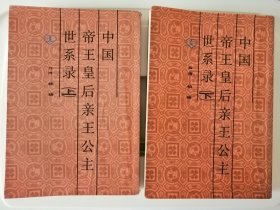 中国
帝王皇后亲王公主
世系录 上
中国
帝王皇后亲王公主
世系录 下